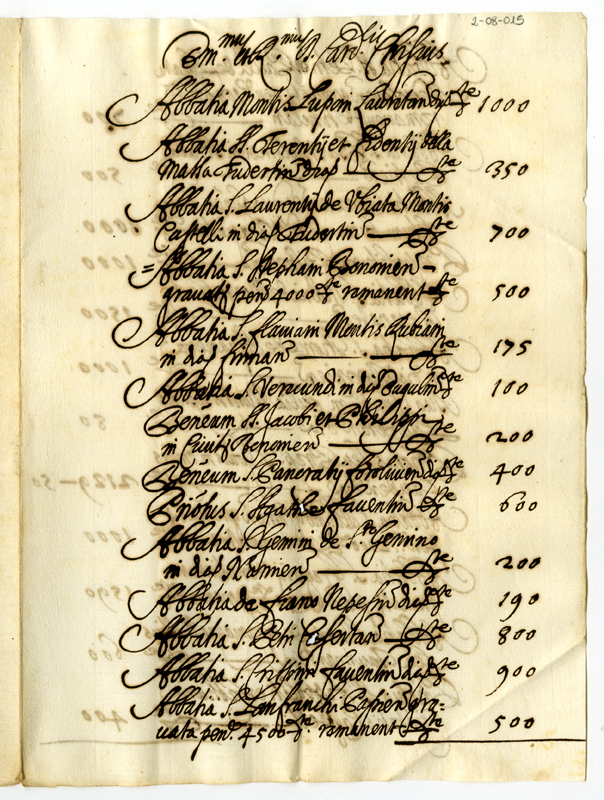 2-08-015
Em.mus et R.mus D. Card.lis Chisius
Abbatia Montis Lupon Lauretan dioc. 1000
Abbatia SS. Terentij et Fidentij della
Massa Tudertin dioc. 350
Abbatia S. Laurentij de Vbiata Montis
Castelli in dioc. Tudertin 700
= Abbatia S. Stephani Bononien
gravat pen. 4000 ramanent 500
Abbatia S. Flaviani Montis Rubiani
in dioc. Firman 175
Abbatia S. Veracundi in dioc. Eugubin 100
Beneum SS. Jacobi et Philippi
in Civit. Bonomen 200
Beneum S. Pancratij Forolivien dioc. 400
Priotus S. Agathe Faventin 600
Abbatia S. Gemini de S.to Gemino
in dioc. Narnien 200
Abbatia de Fiano Nepesin dioc. 190
Abbatia S. Petri Casertan 800
Abbatia S. Faventin dioc. 900
Abbatia S. Lanfranchi Papien gra=
vata pen. 4500 ramanent 500